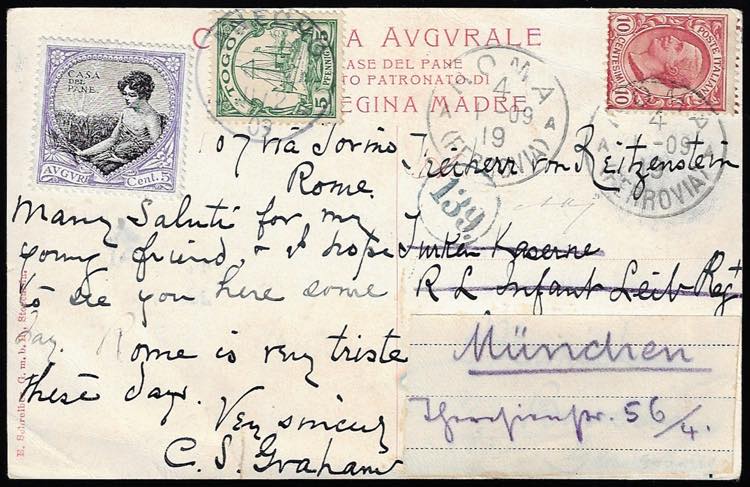 C A AVGVRALE
ASE DEL PANE
TO PATRONATO DI
EGINA MADRE
CASA
DEL
PANE
AVGVRI
Cent. 5
TOGO
5 PFENNIG 5
09
ROMA
4
1-09
19
(FERROVIA)
POSTE ITALIANE
10 CENTESIMI 10
4
-09
(FERROVIA)
139
107 via Torino
Rome.
Many Saluti for my
young friend, & I hope
to see you here some
day. Rome is very triste
these days.
Very sincerely
C. S. Graham
Freiherr von Reitzenstein
Türken Kaserne
R L Infant Leib Regt
München
Theresienstr. 56/4.